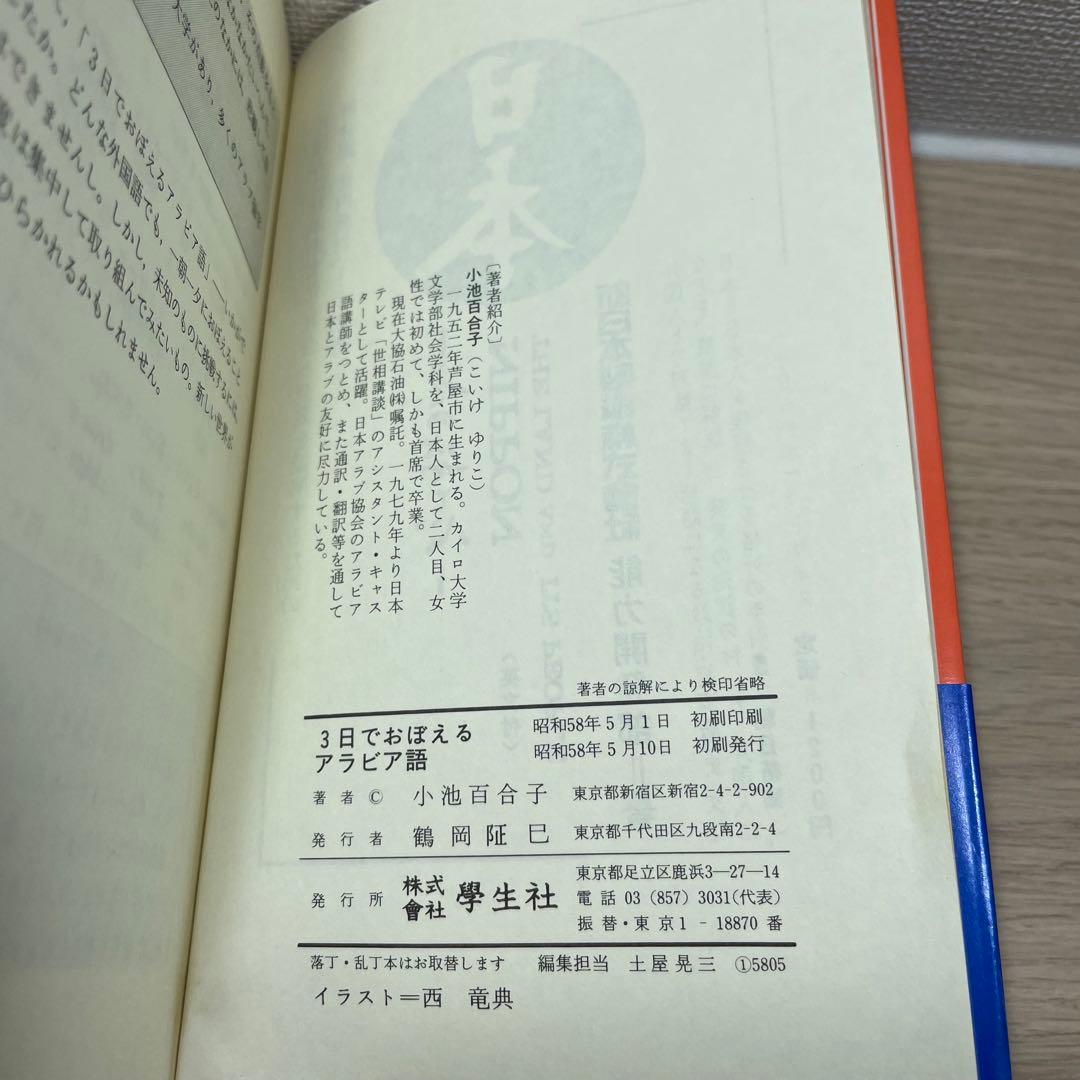 「３日でおぼえるアラビア語」――いかがで
したか。どんな外国語でも、一朝一夕におぼえること
はできませんし。しかし、未知のものに挑戦するには、
は集中して取り組んでみたいもの。新しい世界が
ひらかれるかもしれません。
〔著者紹介〕
小池百合子（こいけ　ゆりこ）
一九五二年芦屋市に生まれる。カイロ大学
文学部社会学科を、日本人として二人目、女
性では初めて、しかも首席で卒業。
現在大協石油㈱嘱託。一九七九年より日本
テレビ「世相講談」のアシスタント・キャス
ターとして活躍。日本アラブ協会のアラビア
語講師をつとめ、また通訳・翻訳等を通して
日本とアラブの友好に尽力している。
著者の諒解により検印省略
３日でおぼえる
アラビア語
昭和58年５月１日　初刷印刷
昭和58年５月10日　初刷発行
著者 © 小池百合子 東京都新宿区新宿2-4-2-902
発行者 鶴岡阷巳 東京都千代田区九段南2-2-4
発行所 株式會社 學生社
東京都足立区鹿浜3―27―14
電話 03 (857) 3031(代表)
振替・東京１‐18870 番
落丁・乱丁本はお取替します　編集担当　土屋晃三　①5805
イラスト＝西　竜典
日本
NIPPON
THE LAND AND ITS PEOPLE